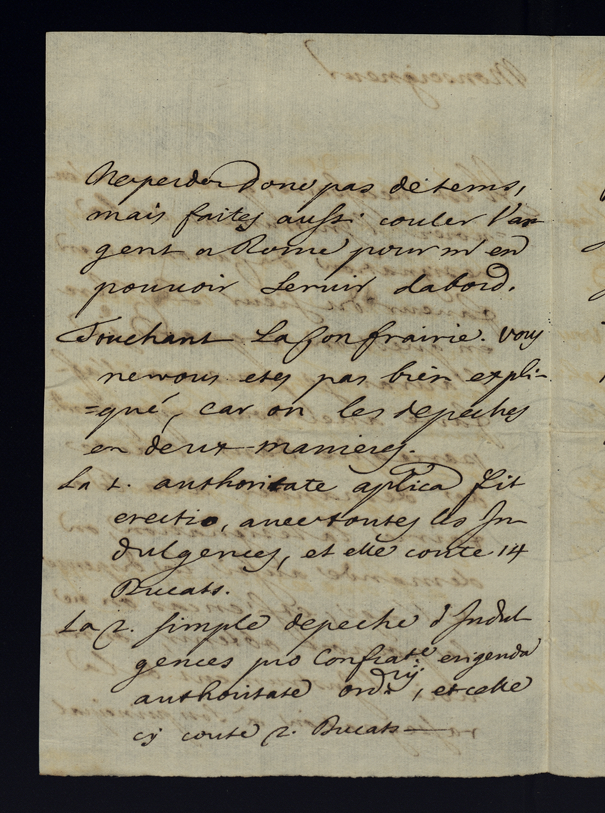 Neperdez Donc pas de tems,
mais faites aussi couler l'ar
gent a Rome pour m'en
pouvoir servir dabord.
Touchant La Confrairie. vous
nevous etes pas bien expli-
=qué, car on les depeches
en deux manieres.
La 1. authoritate aplica fit
erectio, avec toutes les In
dulgences, et elle coute 14
Ducats.
La 2. simple depeche d'Indul
gences pro Confrate erigenda
authoritate ordrij, et celle
cy coute 2. Ducats —